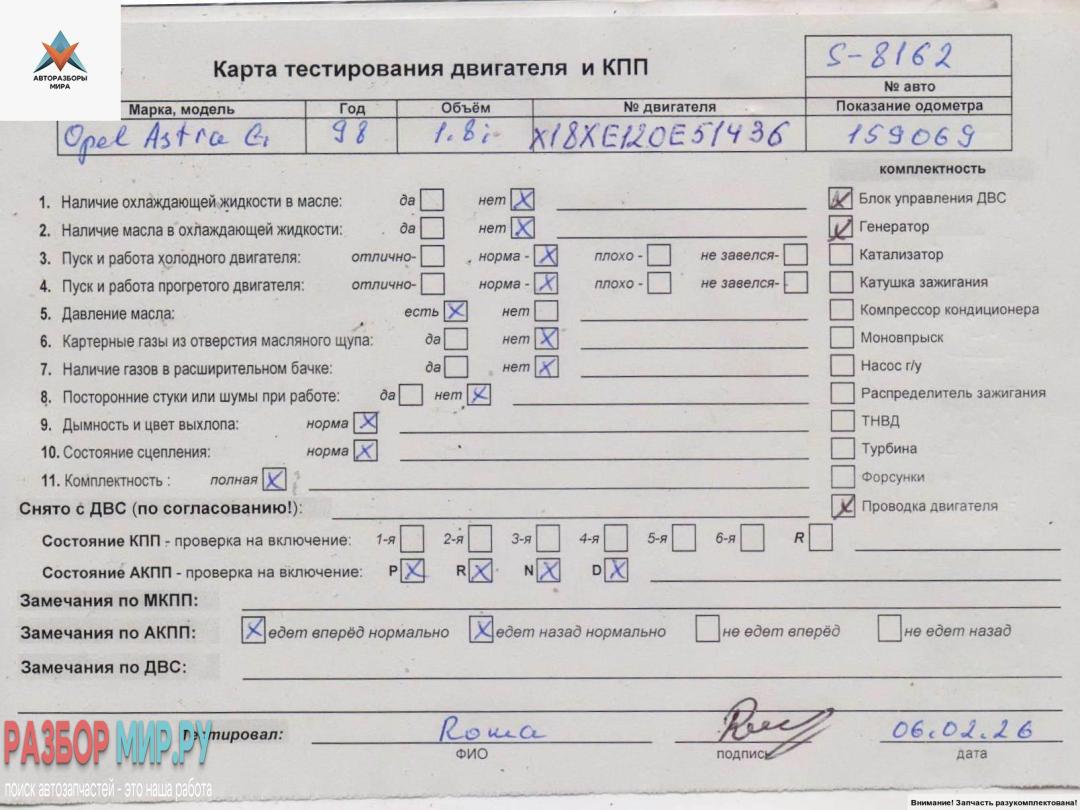 АВТОРАЗБОРЫ
МИРА
Карта тестирования двигателя и КПП
S-8162
№ авто
Марка, модель Год Объём № двигателя Показание одометра
Opel Astra G 98 1.8i X18XE120E51436 159069
комплектность
1. Наличие охлаждающей жидкости в масле: да нет Блок управления ДВС
2. Наличие масла в охлаждающей жидкости: да нет Генератор
3. Пуск и работа холодного двигателя: отлично- норма - плохо - не завелся- Катализатор
4. Пуск и работа прогретого двигателя: отлично- норма - плохо - не завелся- Катушка зажигания
5. Давление масла: есть нет Компрессор кондиционера
6. Картерные газы из отверстия масляного щупа: да нет Моновпрыск
7. Наличие газов в расширительном бачке: да нет Насос г/у
8. Посторонние стуки или шумы при работе: да нет Распределитель зажигания
9. Дымность и цвет выхлопа: норма ТНВД
10. Состояние сцепления: норма Турбина
11. Комплектность : полная Форсунки
Снято с ДВС (по согласованию!): Проводка двигателя
Состояние КПП - проверка на включение: 1-я 2-я 3-я 4-я 5-я 6-я R
Состояние АКПП - проверка на включение: P R N D
Замечания по МКПП:
Замечания по АКПП: едет вперёд нормально едет назад нормально не едет вперёд не едет назад
Замечания по ДВС:
РАЗБОР МИР.РУ
поиск автозапчастей - это наша работа
Тестировал: Roma 06.02.26
ФИО подпись дата
Внимание! Запчасть разукомплектована!